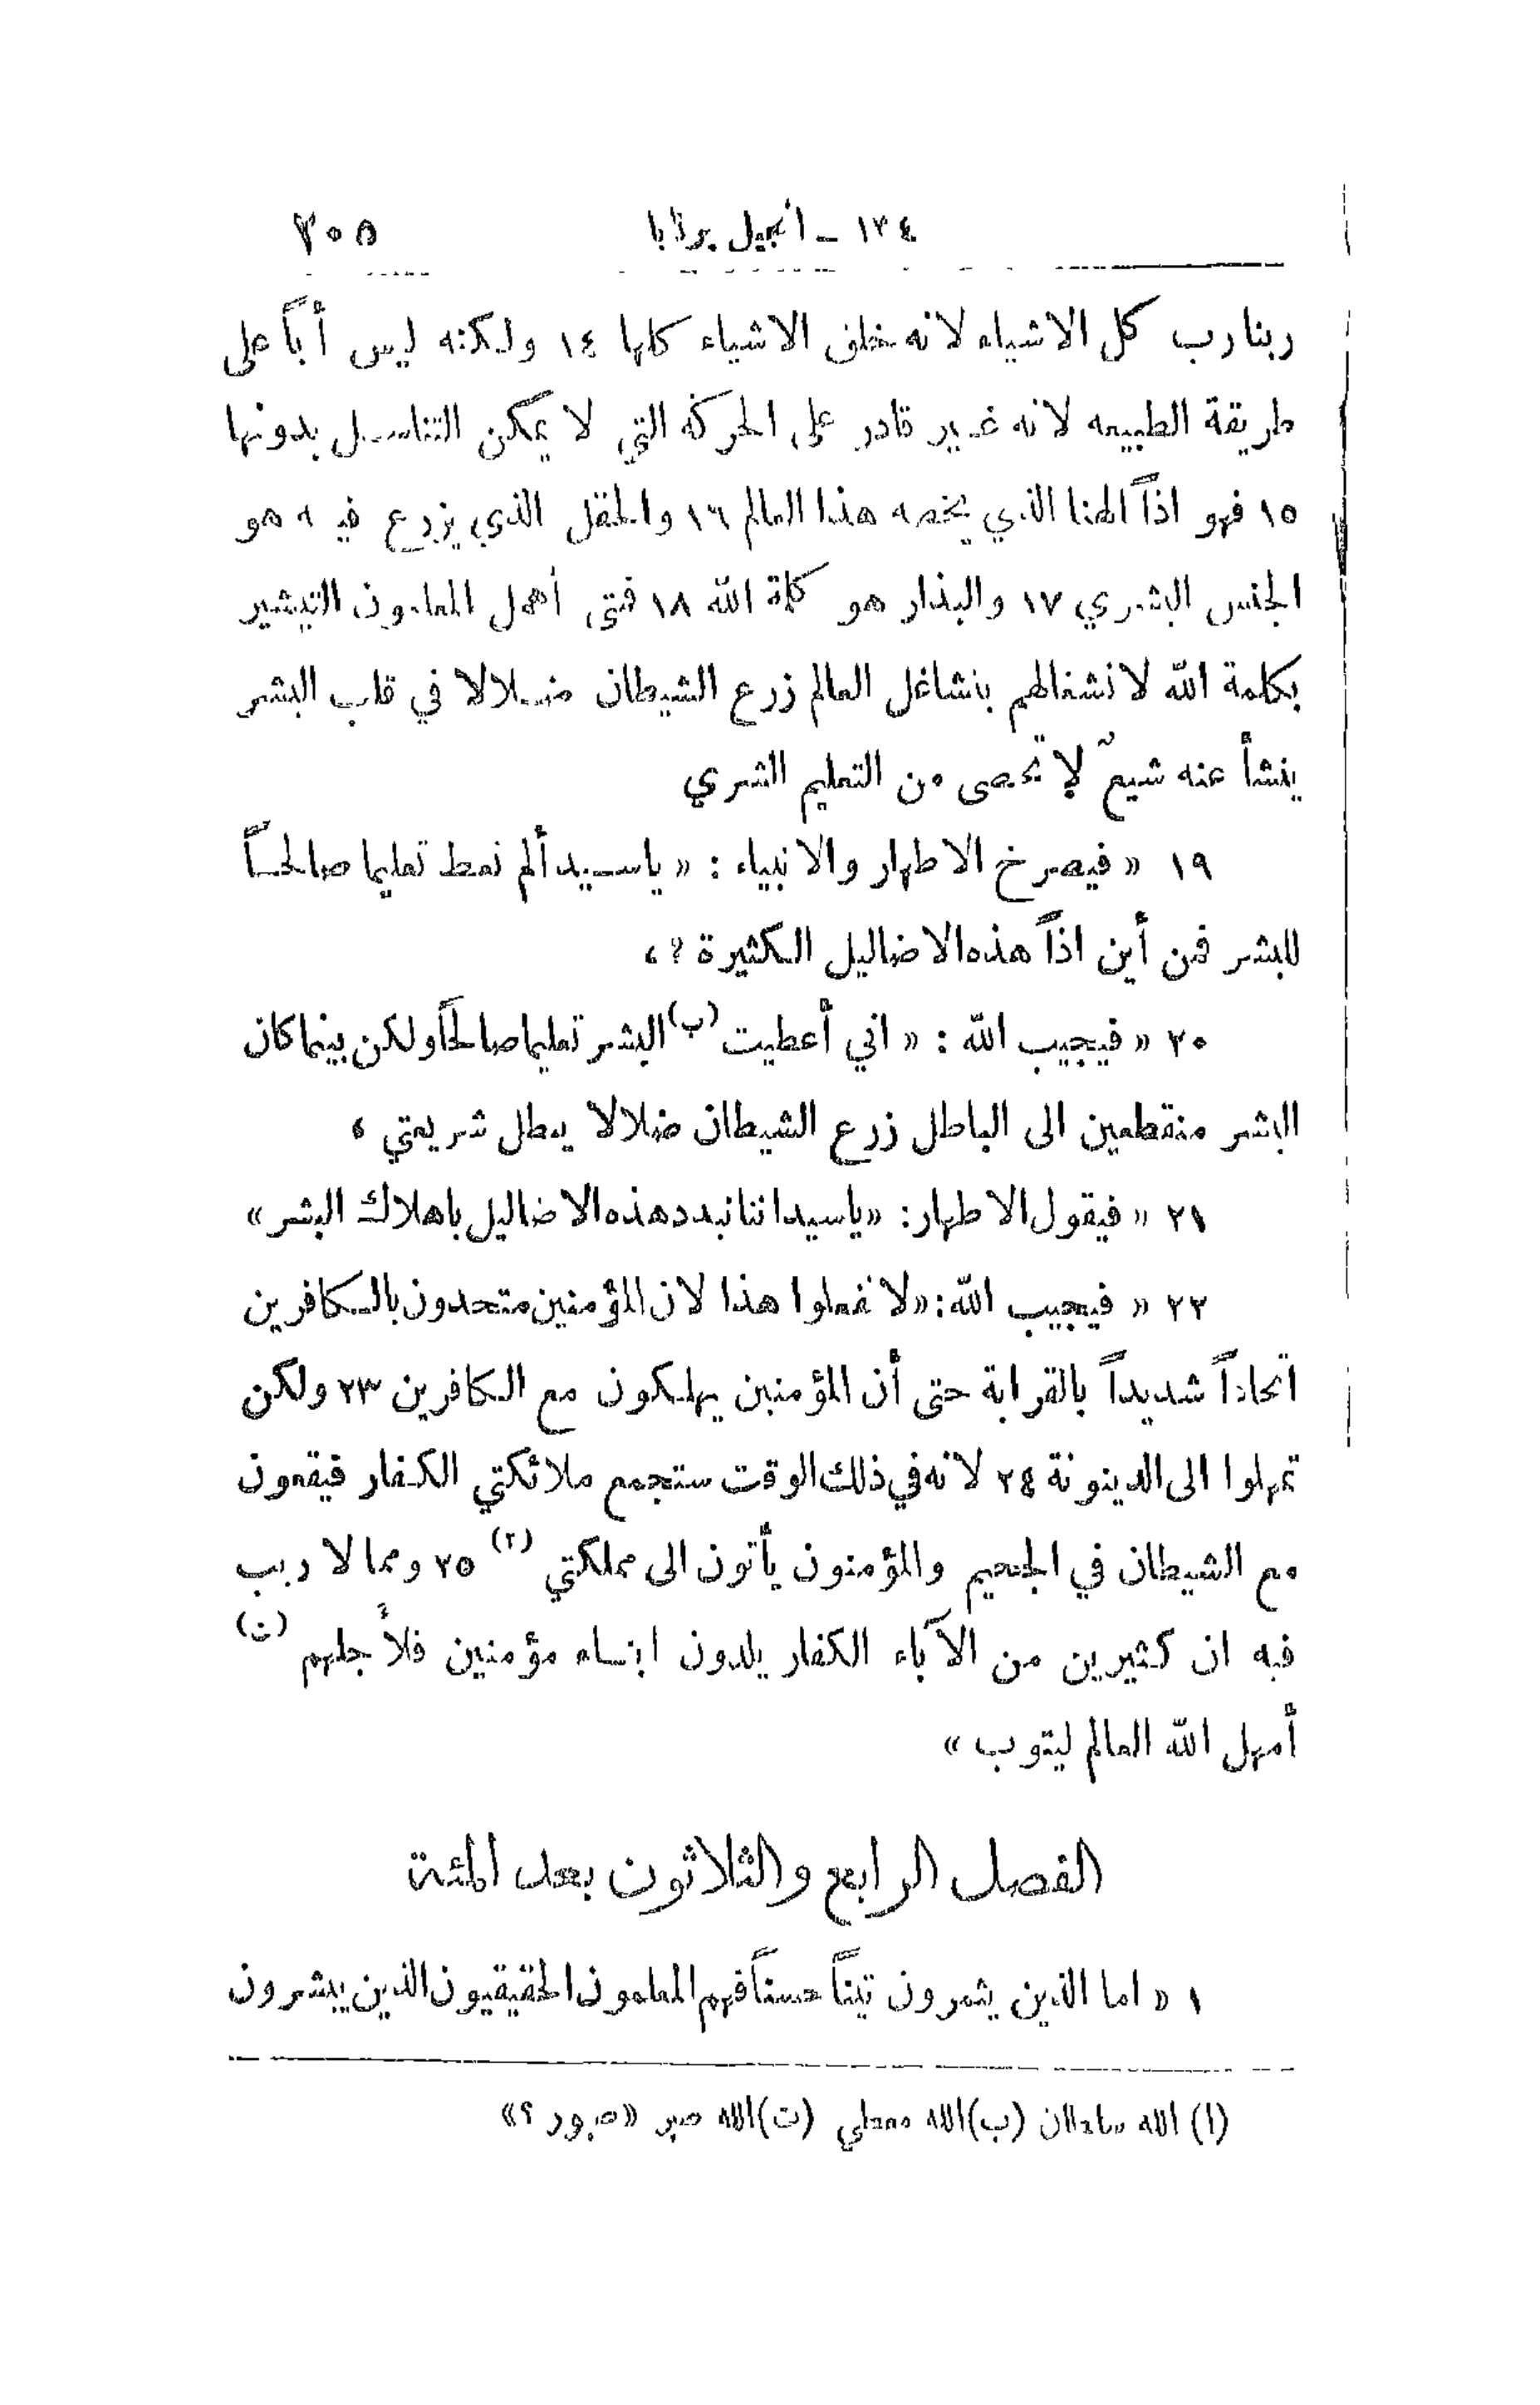 ١٣٤ ـ انجيل برنابا ٢٠٥
ربنا رب كل الاشياء لانه خلق الاشياء كلها ١٤ ولكنه ليس أباً على
طريقة الطبيعه لانه غير قادر على الحركة التي لا يمكن التناسل بدونها
١٥ فهو اذاً الهنا الذي يخصه هذا العالم ١٦ والحقل الذي يزرع فيه هو
الجنس البشري ١٧ والبذار هو كلمة الله ١٨ فمتى أهمل المعلمون التبشير
بكلمة الله لانشغالهم بمشاغل العالم زرع الشيطان ضلالا في قلب البشر
ينشأ عنه شيعٌ لا تحصى من التعليم الشري
١٩ « فيصرخ الاطهار والانبياء : « ياسيد ألم تعط تعليما صالحاً
للبشر فمن أين اذاً هذه الاضاليل الكثيرة ؟ ،
٢٠ « فيجيب الله : « اني أعطيت (ب) البشر تعليما صالحاً ولكن بينما كان
البشر منقطعين الى الباطل زرع الشيطان ضلالا يبطل شريعتي ،
٢١ « فيقول الاطهار : « ياسيد اننا نبدد هذه الاضاليل باهلاك البشر »
٢٢ « فيجيب الله : « لا تفعلوا هذا لان المؤمنين متحدون بالكافرين
اتحاداً شديداً بالقرابة حتى أن المؤمنين يهلكون مع الكافرين ٢٣ ولكن
تمهلوا الى الدينونة ٢٤ لانه في ذلك الوقت ستجمع ملائكتي الكفار فيقعون
مع الشيطان في الجحيم والمؤمنون يأتون الى مملكتي (٢) ٢٥ ومما لا ريب
فيه ان كثيرين من الآباء الكفار يلدون ابناء مؤمنين فلأجلهم (ت)
أمهل الله العالم ليتوب »
الفصل الرابع والثلاثون بعد المئة
١ « اما الذين يثمرون تيناً حسناً فهم المعلمون الحقيقيون الذين يبشرون
(ا) الله سلطان (ب) الله معطي (ت) الله صبر « صبور ؟ »